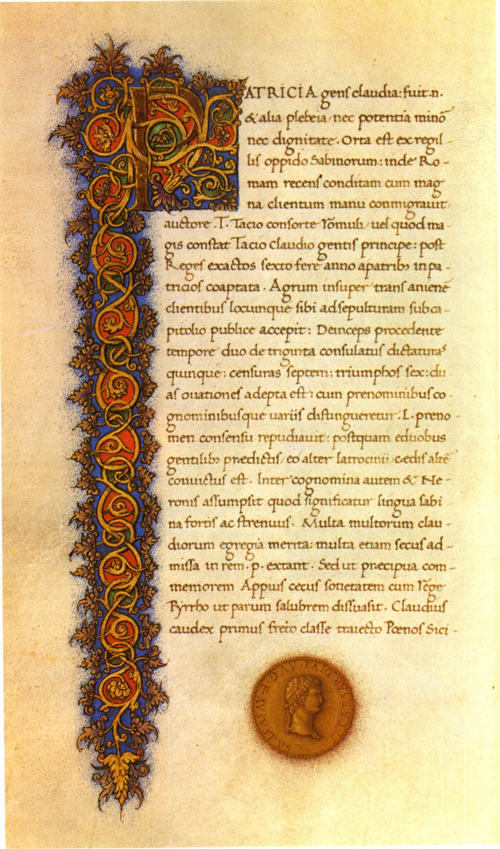 PATRICIA gens claudia: fuit .n.
& alia plebeia / nec potentia mino
nec dignitate. Orta est ex regil-
lis oppido Sabinorum: inde Ro-
mam recens conditam cum mag
na clientum manu conmigravit
auctore .T. Tacio consorte romuli / vel quod ma-
gis constat Tacio claudio gentis principe: post
Reges exactos sexto fere anno apatribo inpa-
tricios coaptata. Agrum insuper trans aniene
clientibus locumque sibi ad sepulturam sub ca-
pitolio publice accepit: Deinceps procedente
tempore duo de triginta consulatus dictaturas
quinque: censuras septem: triumphos sex: du
as ovationes adepta est: cum prenominibus co-
gnominibusque variis distingueretur .L. preno
men consensu repudiavit: postquam eduobus
gentilibo praedictis / eo alter latrocinii / caedis alte
convictus est. Inter cognomina autem & Ne-
ronis assumpsit quod significatur lingua sabi
na fortis ac strenuus. Multa multorum clau-
diorum egregia merita: multa etiam secus ad-
missa in rem .p. extant. Sed ut precipua com-
memorem Appius cecus sotietatem cum rege
Pyrrho ut parum salubrem dissuasit. Claudius
caudex primus freto classe traiecto Poenos Sici-